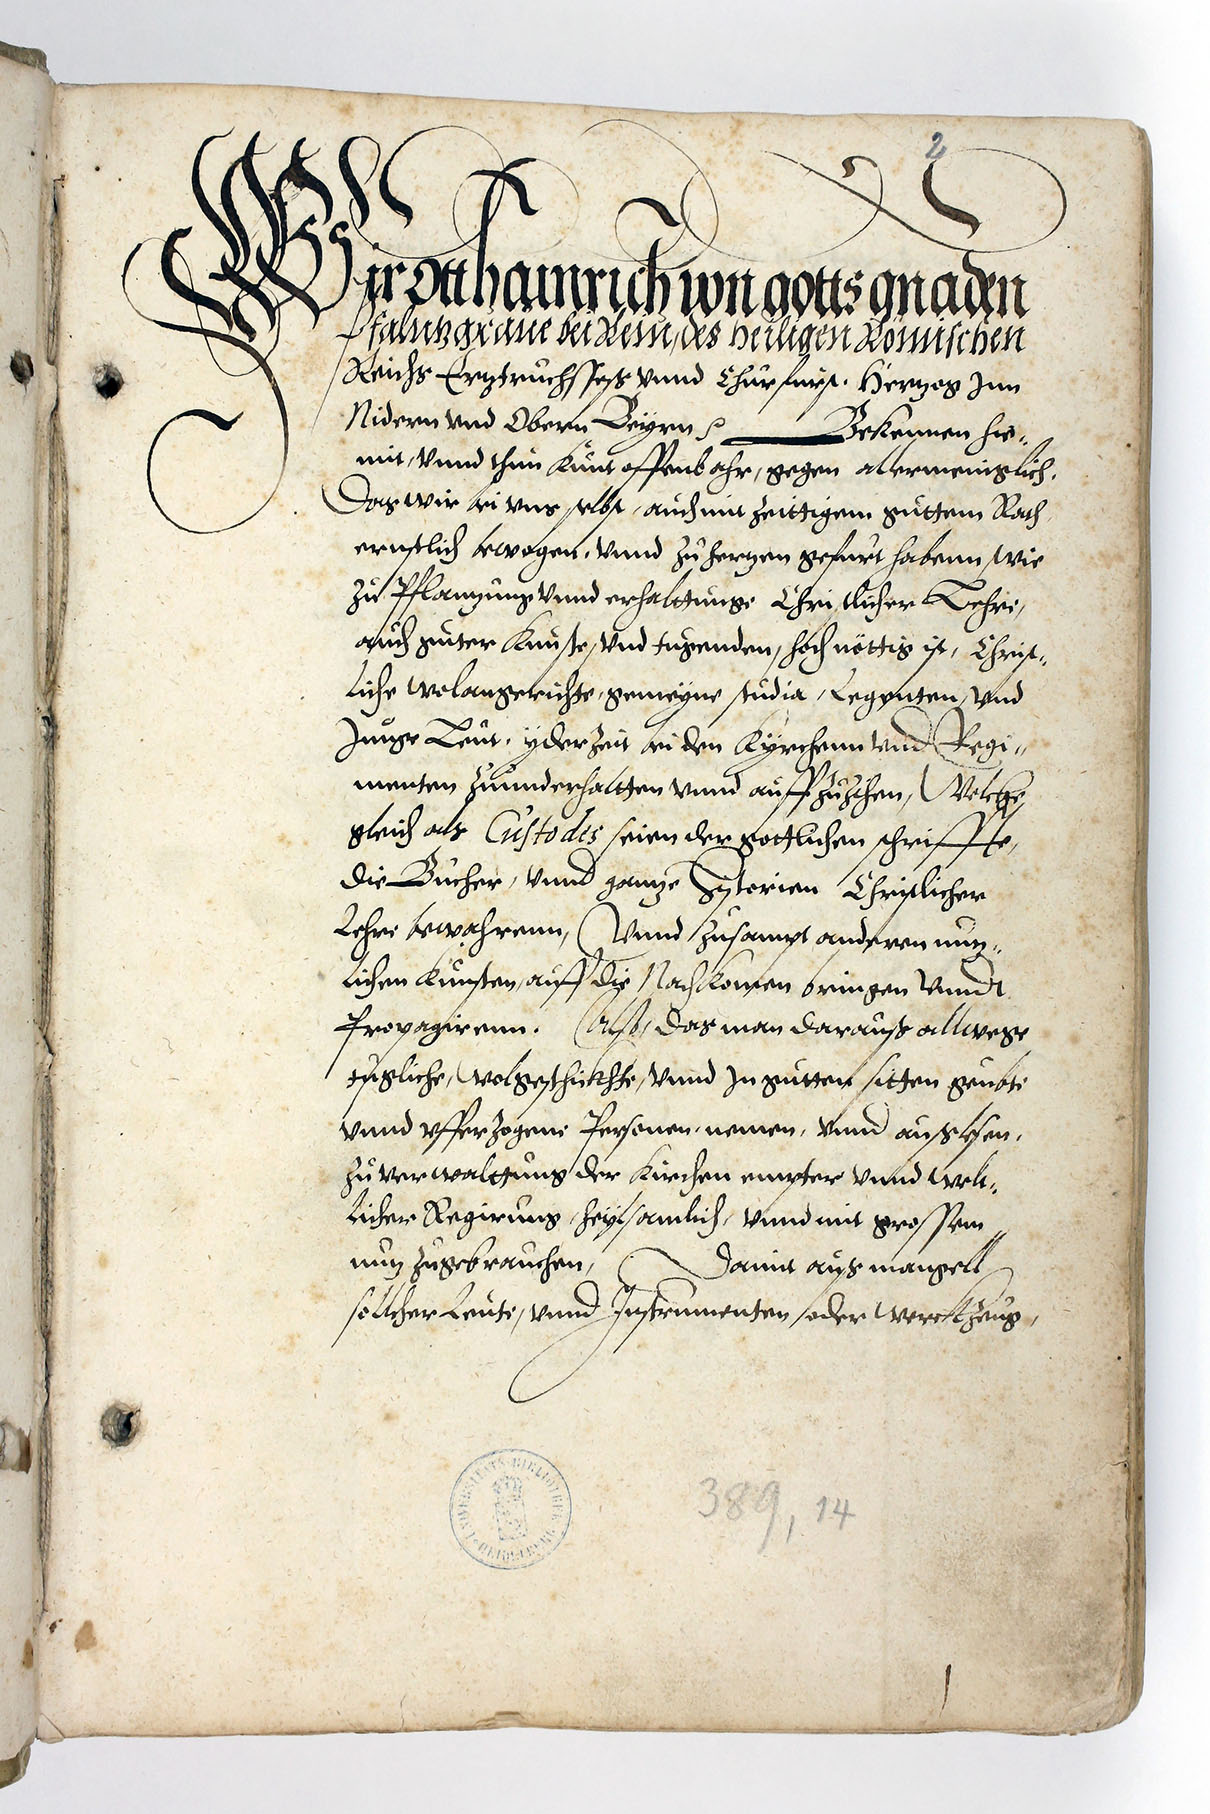 2
Wir ott hainrich von gotts gnaden
Pfaltzgraue bei Rein, des heiligen Römischen
Reichs Ertztruchsses vnnd Churfurst. Hertzog Jnn
Nidern vnd Obern Beyrn Bekennen hie-
mit, vnnd thun kunt offenbahr, gegen allermeniglich.
Das wir bei vns selbst, auch mit zeittigem guttem Rath
ernstlich bewogen, vnnd zu hertzen gefurt habenn, wie
zu Pflantzung vnnd erhalttunge Christlicher Lehre,
auch guter kunste, vnd tugenden, hoch nöttig ist, Christ-
liche wolangerichte, gemeyne studia, Legenten, vnd
Junge Leut, yderzeit bei den Kyrchenn vnd Regi-
menten zuunderhaltten vnnd auffzuzihen, Welche
gleich als Custodes seien der gottlichen schriffte,
die Bucher, vnnd gantze Hystorien Christlicher
Lehre bewahrenn, Vnnd zusampt anderen nutz-
lichen kunsten, auff die Nachkomen bringen vnndt
propagirenn. Also, das man darauss allwege
tugliche, wolgeschickhte, vnnd Jn gutten sitten geubte
vnnd vfferzogene Personen, nemen, vnnd ausslesen,
zu verwalttung der kirchen empter vnnd welt-
licher Regirung, heylsamlich, vnnd mit grossem
nutz zugebrauchen, Damit auss mangell
sollcher Leute, vnnd Instrumenten, oder werckhzeug,
UNIVERSITÄTS-BIBLIOTHEK HEIDELBERG
389, 14